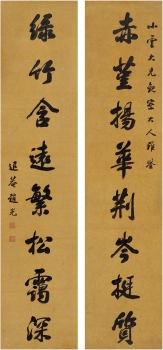 小雲大兄親家大人雅鑒
赤堇揚華荊岑挺質
綠竹含遠繁松靄深
退菴趙光